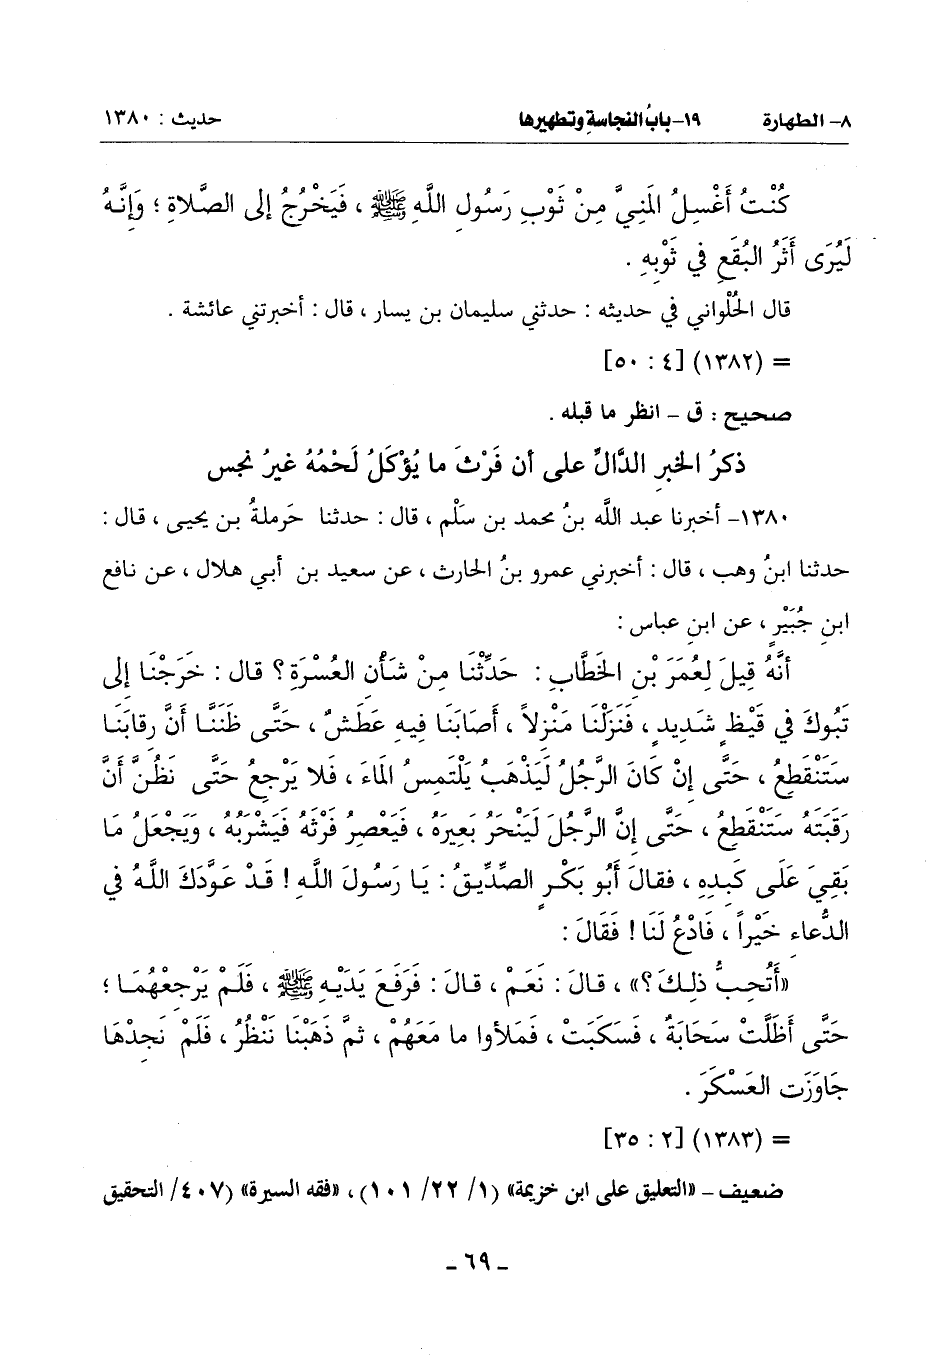 ٨- الطهارة ١٩-بابُ النجاسةِ وتطهيرها حديث : ١٣٨٠
كُنْتُ أَغْسِلُ المَنِيَّ مِنْ ثَوْبِ رَسُولِ اللَّهِ ﷺ ، فَيَخْرُجُ إلى الصَّلاةِ ؛ وَإِنَّهُ
لَيُرَى أَثَرُ البُقَعِ في ثَوْبِهِ .
قال الحُلْواني في حديثه : حدثني سليمان بن يسار ، قال : أخبرتني عائشة .
= (١٣٨٢) [٤ : ٥٠]
صحيح : ق - انظر ما قبله .
ذكرُ الخبرِ الدَّالِّ على أن فَرْثَ ما يُؤْكَلُ لَحْمُهُ غيرُ نجس
١٣٨٠- أخبرنا عبد اللَّه بنُ محمد بن سَلْم ، قال : حدثنا حَرملةُ بن يحيى ، قال :
حدثنا ابنُ وهب ، قال : أخبرني عمرو بنُ الحارث ، عن سعيد بن أبي هلال ، عن نافع
ابنِ جُبَيْرٍ ، عن ابنِ عباس :
أنَّهُ قِيلَ لِعُمَرَ بْنِ الخَطَّابِ : حَدِّثْنَا مِنْ شَأْنِ العُسْرَةِ ؟ قال : خَرَجْنَا إلى
تَبُوكَ في قَيْظٍ شَدِيدٍ ، فَنَزَلْنَا مَنْزِلاً ، أَصَابَنَا فِيهِ عَطَشٌ ، حَتَّى ظَنَنَّا أَنَّ رِقابَنَا
سَتَنْقَطِعُ ، حَتَّى إنْ كَانَ الرَّجُلُ لَيَذْهَبُ يَلْتَمِسُ المَاءَ ، فَلا يَرْجِعُ حَتَّى نَظُنَّ أَنَّ
رَقَبَتَهُ سَتَنْقَطِعُ ، حَتَّى إنَّ الرَّجُلَ لَيَنْحَرُ بَعِيرَهُ ، فَيَعْصِرُ فَرْثَهُ فَيَشْرَبُهُ ، وَيَجْعَلُ مَا
بَقِيَ عَلَى كَبِدِهِ ، فقالَ أَبُو بَكْرٍ الصِّدِّيقُ : يَا رَسُولَ اللَّهِ ! قَدْ عَوَّدَكَ اللَّهُ في
الدُّعاءِ خَيْراً ، فَادْعُ لَنَا ! فَقَالَ :
«أَتُحِبُّ ذلِكَ ؟» ، قالَ : نَعَمْ ، قالَ : فَرَفَعَ يَدَيْهِ ﷺ ، فَلَمْ يَرْجِعْهُمَا ؛
حَتَّى أَظَلَّتْ سَحَابَةٌ ، فَسَكَبَتْ ، فَمَلأوا ما مَعَهُمْ ، ثمَّ ذَهَبْنَا نَنْظُرُ ، فَلَمْ نَجِدْهَا
جَاوَزَت العَسْكَرَ .
= (١٣٨٣) [٢ : ٣٥]
ضعيف - «التعليق على ابن خزيمة» (١/ ٢٢/ ١٠١) ، «فقه السيرة» (٤٠٧/ التحقيق
- ٦٩ -